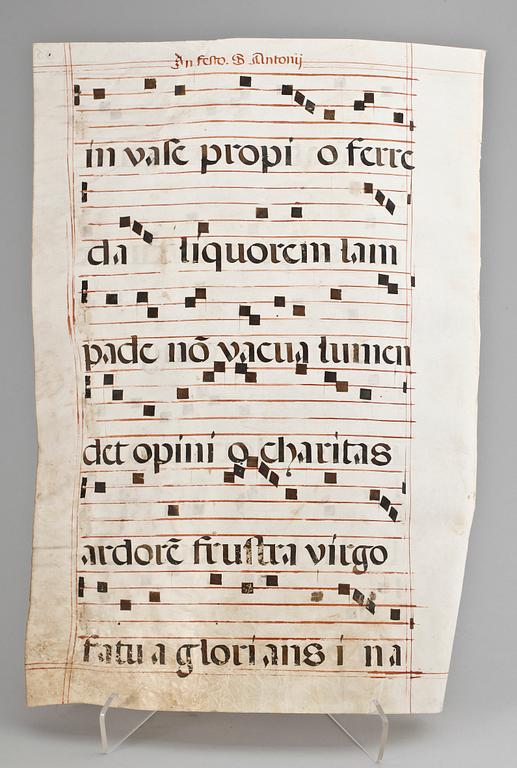 In festo. S Antonij
in vase propi o ferre
da liquorem lam
pade nō vacua lumen
det opini o charitas
ardorē frustra virgo
fatu a glori ans i na